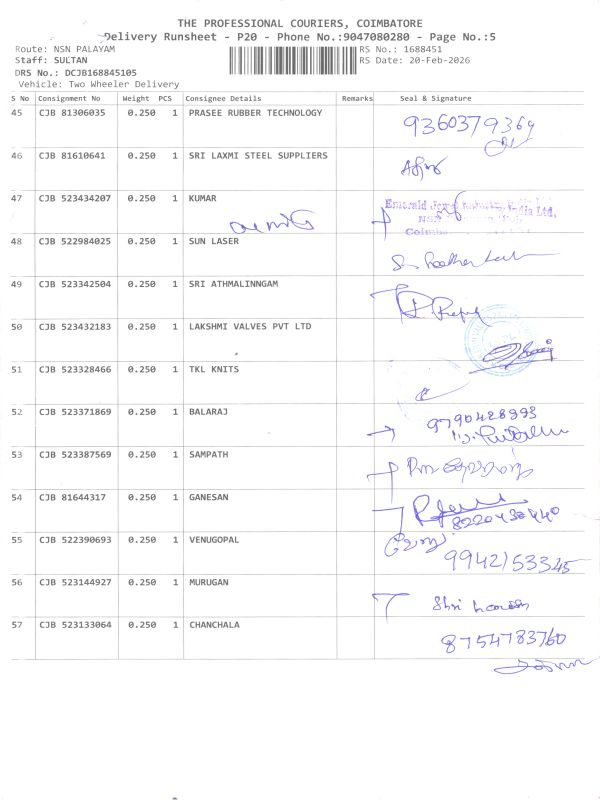 THE PROFESSIONAL COURIERS, COIMBATORE
Delivery Runsheet - P20 - Phone No.:9047080280 - Page No.:5
Route: NSN PALAYAM RS No.: 1688451
Staff: SULTAN RS Date: 20-Feb-2026
DRS No.: DCJB168845105
Vehicle: Two Wheeler Delivery
S No Consignment No Weight PCS Consignee Details Remarks Seal & Signature
45 CJB 81306035 0.250 1 PRASEE RUBBER TECHNOLOGY 9360379369
46 CJB 81610641 0.250 1 SRI LAXMI STEEL SUPPLIERS
47 CJB 523434207 0.250 1 KUMAR Emerald India Ltd.
48 CJB 522984025 0.250 1 SUN LASER
49 CJB 523342504 0.250 1 SRI ATHMALINNGAM
50 CJB 523432183 0.250 1 LAKSHMI VALVES PVT LTD
51 CJB 523328466 0.250 1 TKL KNITS
52 CJB 523371869 0.250 1 BALARAJ 9790428993
53 CJB 523387569 0.250 1 SAMPATH
54 CJB 81644317 0.250 1 GANESAN 8220438440
55 CJB 522390693 0.250 1 VENUGOPAL 9942153345
56 CJB 523144927 0.250 1 MURUGAN Shri
57 CJB 523133064 0.250 1 CHANCHALA 8754783760